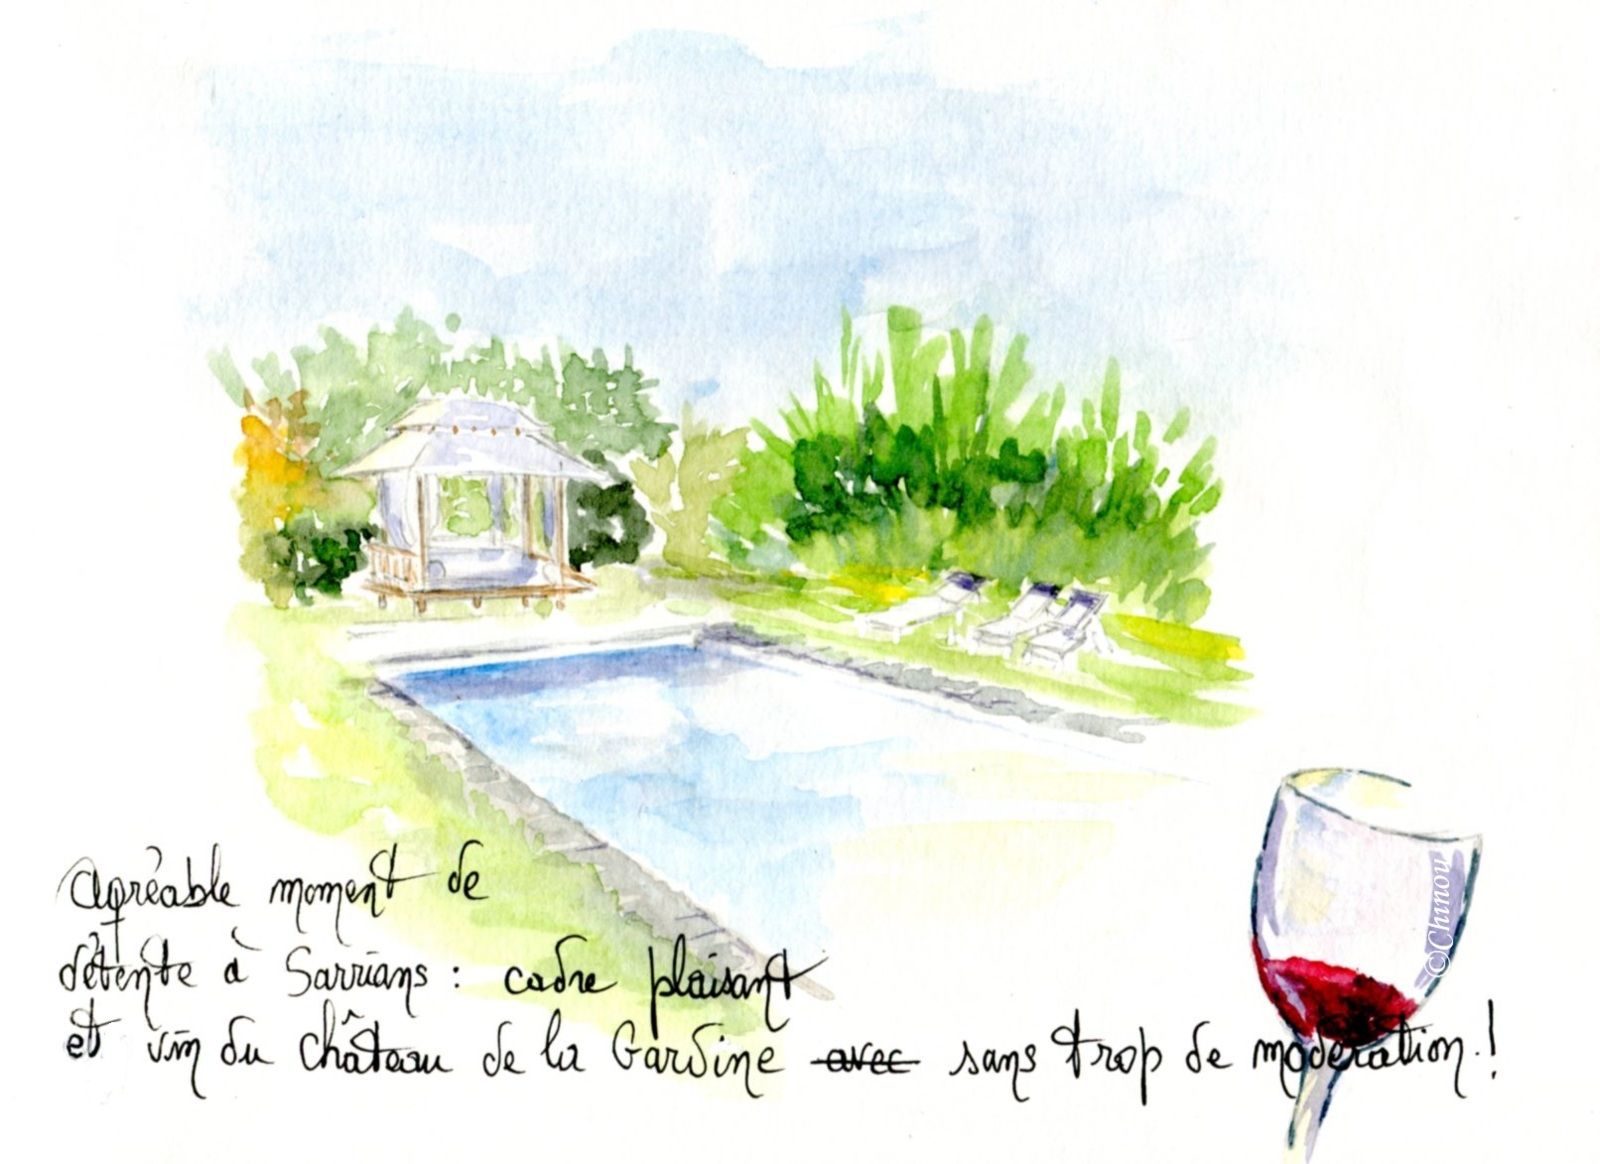 agréable moment de
détente à Sarrians : cadre plaisant
et vin du château de la Gardine avec sans trop de modération.!
©Chinou